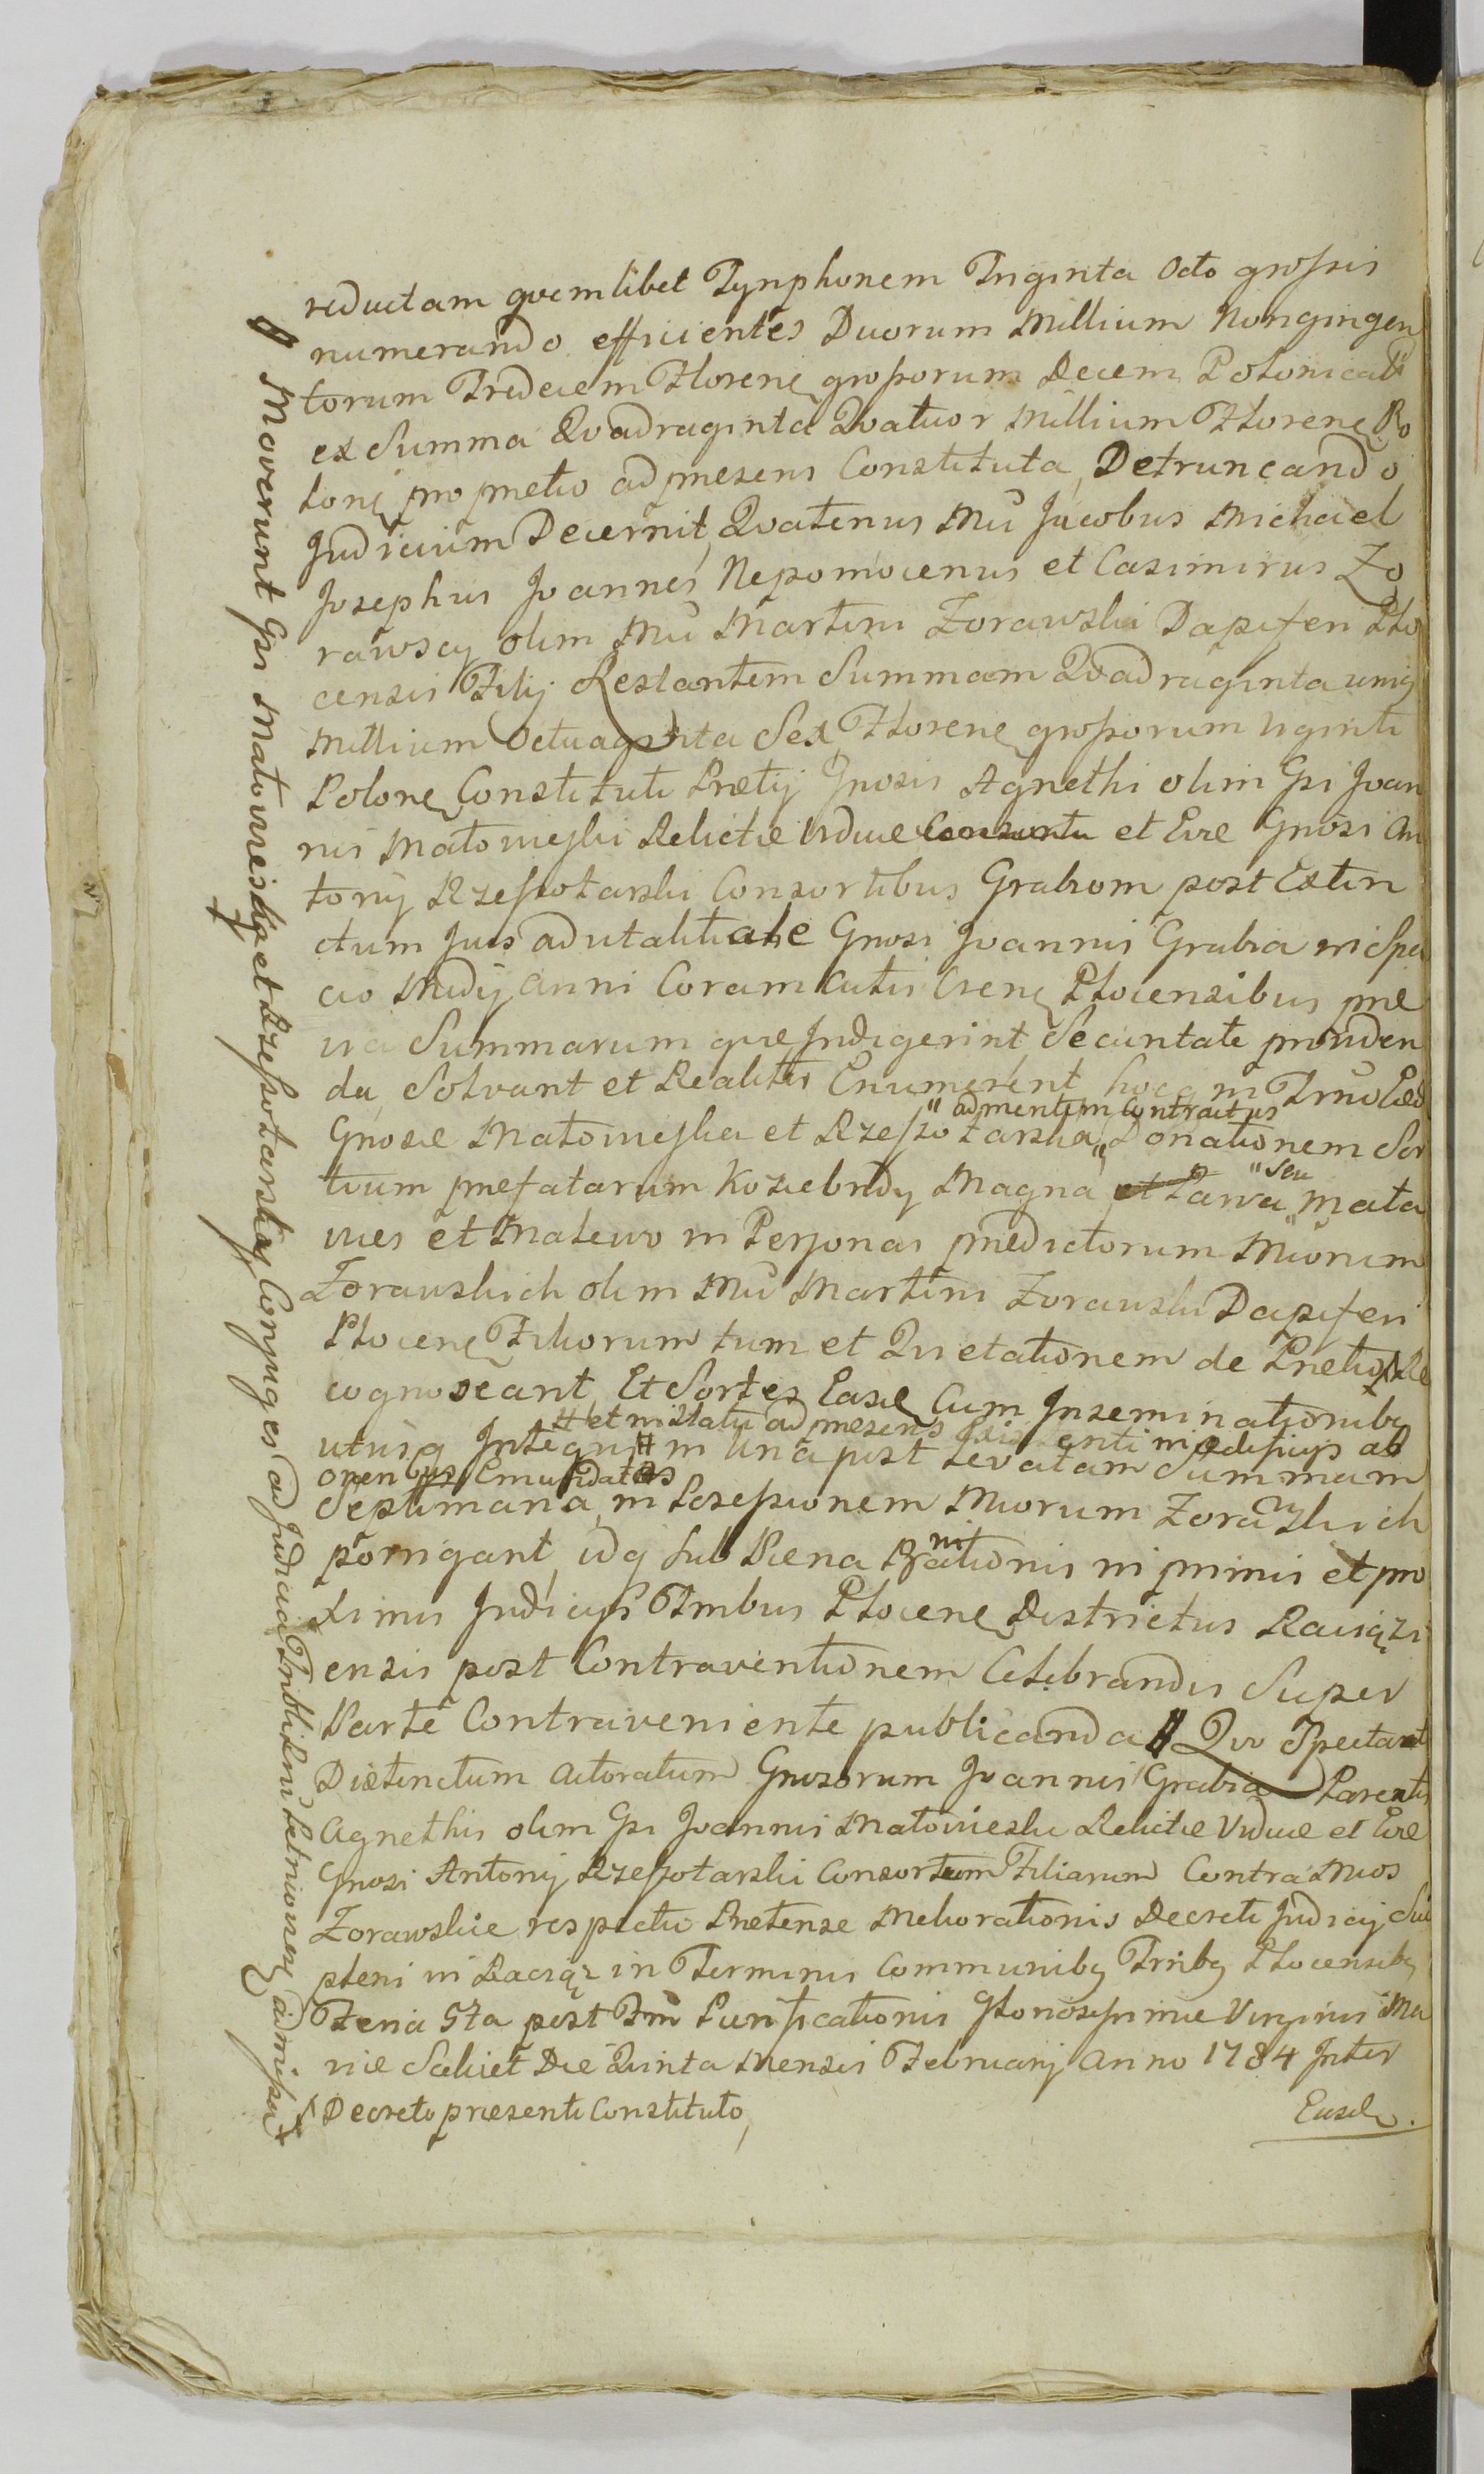 reductam quemlibet Tynphonem Triginta Octo grossis
numerando efficientes Duorum Millium Nongingen
torum Tredecem Florenę grossorum Decem Polonicali
ex Summa Quadraginta Quatuor Millium Florenę Po
lonę pro pretio ad presens Constituta, Detruncando
Judicium Decernit, Quatenus Mũ Jacobus Michael
Josephus Joannes Nepomocenus et Casimirus Zo
rawscy olim Mũ Martini Zorawski Dapiferi Plo
censis Filij Restantem Summam Quadraginta unig
Millium Octuaginta Sex Florenę grossorum viginti
Polonę Constituti Pretij Gnosis Agnethi olim Gsi Joan
nis Matowieski Relictæ Viduæ Consorti et Evæ Gnosi An
tonij Rzeszotarski Consortibus Grabiom post Extin
ctum Jus advitalitiale Gnosi Joannis Grabia in Spa
cio Medij Anni Coram Actis Csenę Plocensibus præ
via Summarum quæ Indigerint Securitate providen
da, Solvant et Realiter Enumerent, hocq in Trmo Eæd
Gnosæ Matowieska et Rzeszotarska "ad mentem Contractus" Donationem Sor
tium prefatarum Koziebrody Magna et Parva "seu" Mała
wies et Malewo in Personas predictorum Miorum
Zorawskich olim Mũ Martini Zorawski Dapiferi
Plocenę Filiorum tum et Quietationem de Pretio Re
cognoscant, Et Sortes Easdę Cum Inseminationibq
# et in Statu ad presens Existenti in ædificijs ab
utrisq Integris # in Una post Levatam Summam
onenbus Emundatas
Septimana, in Possessionem Miorum Zorawskich
porrigant, idq sub Pæna Bannitionis in primis et pro
ximis Judicijs Trnlibus Plocenę Districtus Raciąży
ensis post Contraventionem Celebrandis Super
Parte Contraveniente publicanda # Quo Spectat
Distinctum Actoratum Gnosorum Joannis Grabia Parentis
Agnethis olim Gsi Joannis Matowieski Relictæ Viduæ et Evæ
Gnosi Antonij Rzeszotarski Consortum Filiarum Contra Mios
Zorawskie respectu Prætensæ Meliorationis Decreti Judicij Sui
pleni in Raciąż in Terminis Communibq Trnlibq Plocensibq
Feria 5ta post Ftm Purificationis Gloriosissimæ Virginis Ma
riæ Scilicet Die Quinta Mensis Februarij Anno 1784 Inter
Decreto præsenti Constituto, Easdę.
# Moverunt Gsi Matowieskię et Rzeszotarskię Conjuges ad Judicia Trnlia Petrionesę admissa